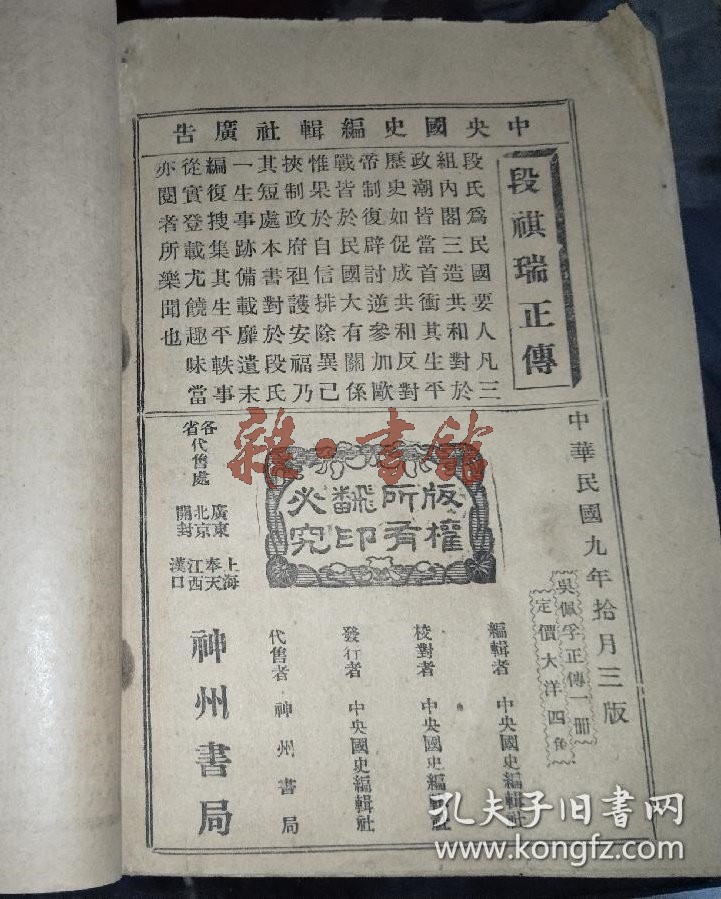 中央國史編輯社廣告
段祺瑞正傳
段氏爲民國要人凡三
組内閣三造共和對於
政潮皆當首衝其生平
歷史如促成共和反對
帝制復辟討逆參加歐
戰皆於民國大有關係
惟果於自信排除異已
挾制政府祖護安福乃
其短處本書對於段氏
一生事跡備載靡遺末
編復搜集其生平軼事
從實登載尤饒趣味當
亦閱者所樂聞也
中華民國九年拾月三版
吳佩孚正傳一冊
定價大洋四角
版權所有翻印必究
編輯者 中央國史編輯社
校對者 中央國史編輯社
發行者 中央國史編輯社
代售者 神州書局
各省代售處
廣東 北京 開封
上海 奉天 江西 漢口
神州書局
雜·書館
孔夫子旧书网
www.kongfz.com